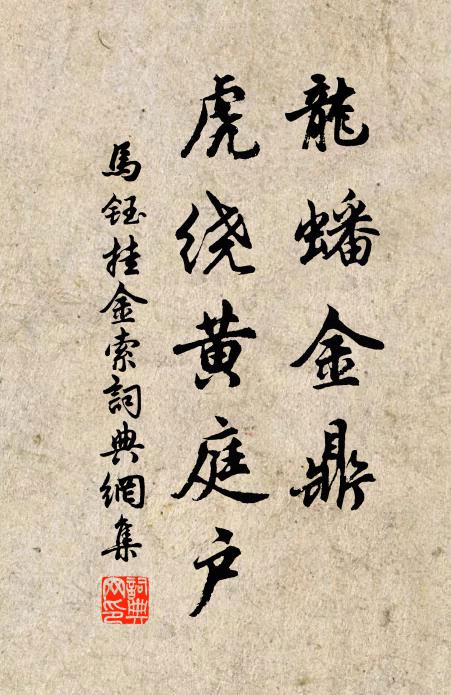 龍蟠金鼎
虎绕黄庭户
馬鈺挂金索詞典網集
詞典网印